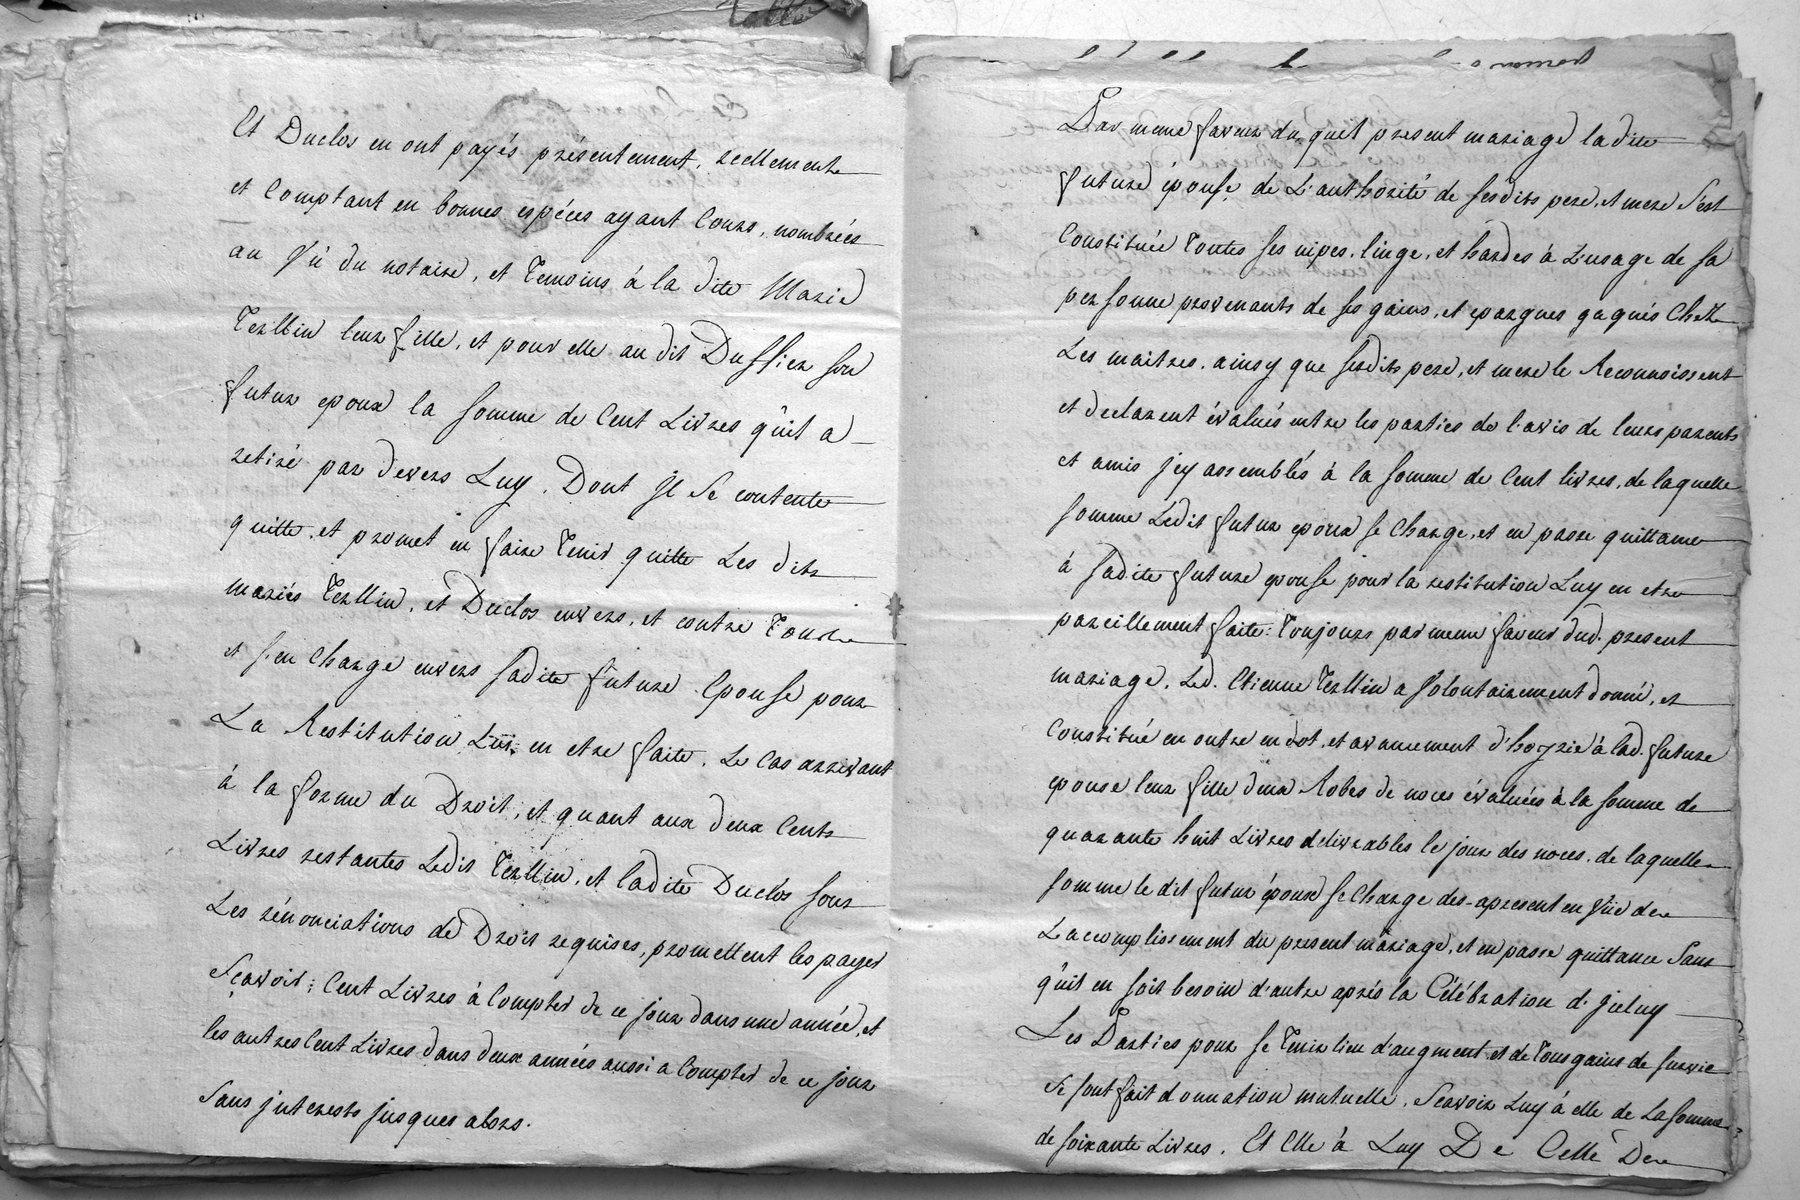 Et Duclos en ont payés présentement, reellement
et Comptant en bonnes espéces ayant Cours, nombrées
au Vû du notaire, et Temoins à la dite Marie
Terllin leur fille, et pour elle au dit Duffier son
futur epoux la somme de Cent Livres qu'il a
retiré par devers Luy. Dont Il Se contente
quitte, et promet en faire Tenir quitte Les dits
mariés Terllin, et Duclos envers, et contre Tous
et s'en Charge envers sadite future Epouse pour
La Restitution Luy en etre faite, Le Cas arrivant
à la forme du Droit; et quant aux deux Cents
Livres restantes Ledit Terllin, et ladite Duclos sous
Les rénonciations de Droit requises, promettent les payer
Sçavoir; Cent Livres à Compter de ce jour dans une année, et
les autres Cent Livres dans deux années aussi a Compter de ce jour
Sans jnterests jusques alors.
Par meme faveur du quel present mariage la dite
future épouse de L'authorité de sesdits pere, et mere S'est
Constituée Toutes ses nipes, linge, et hardes à L'usage de sa
personne provenants de ses gains, et epargnes gagnés Chez
Les maitres, ainsy que sesdits pere, et mere le Reconnoissent
et declarent évalués entre les parties de l'avis de leurs parents
et amis jcy assemblés à la somme de Cent livres, de laquelle
somme Ledit futur epoux se Charge, et en passe quittance
à sadite future epouse pour la restitution Luy en etre
pareillement faite: Toujours par meme faveur dud. present
mariage, Led. Etienne Terllin a Volontairement donné, et
Constitué en outre en dot, et avancement d'hoyrie à lad. future
epouse leur fille deux Robes de noces évaluées à la somme de
quarante huit Livres délivrables le jour des noces, de laquelle
somme le dit futur époux se Charge des-apresent en Vüe de
L'accomplissement du present mariage, et en passe quittance Sans
qu'il en soit besoin d'autre aprés la Célébration d'jceluy
Les Parties pour se Tenir lieu d'augment et de Tous gains de survie
se sont fait donnation mutuelle, Scavoir Luy à elle de La somme
de soixante Livres. Et Elle à Luy De Celle De